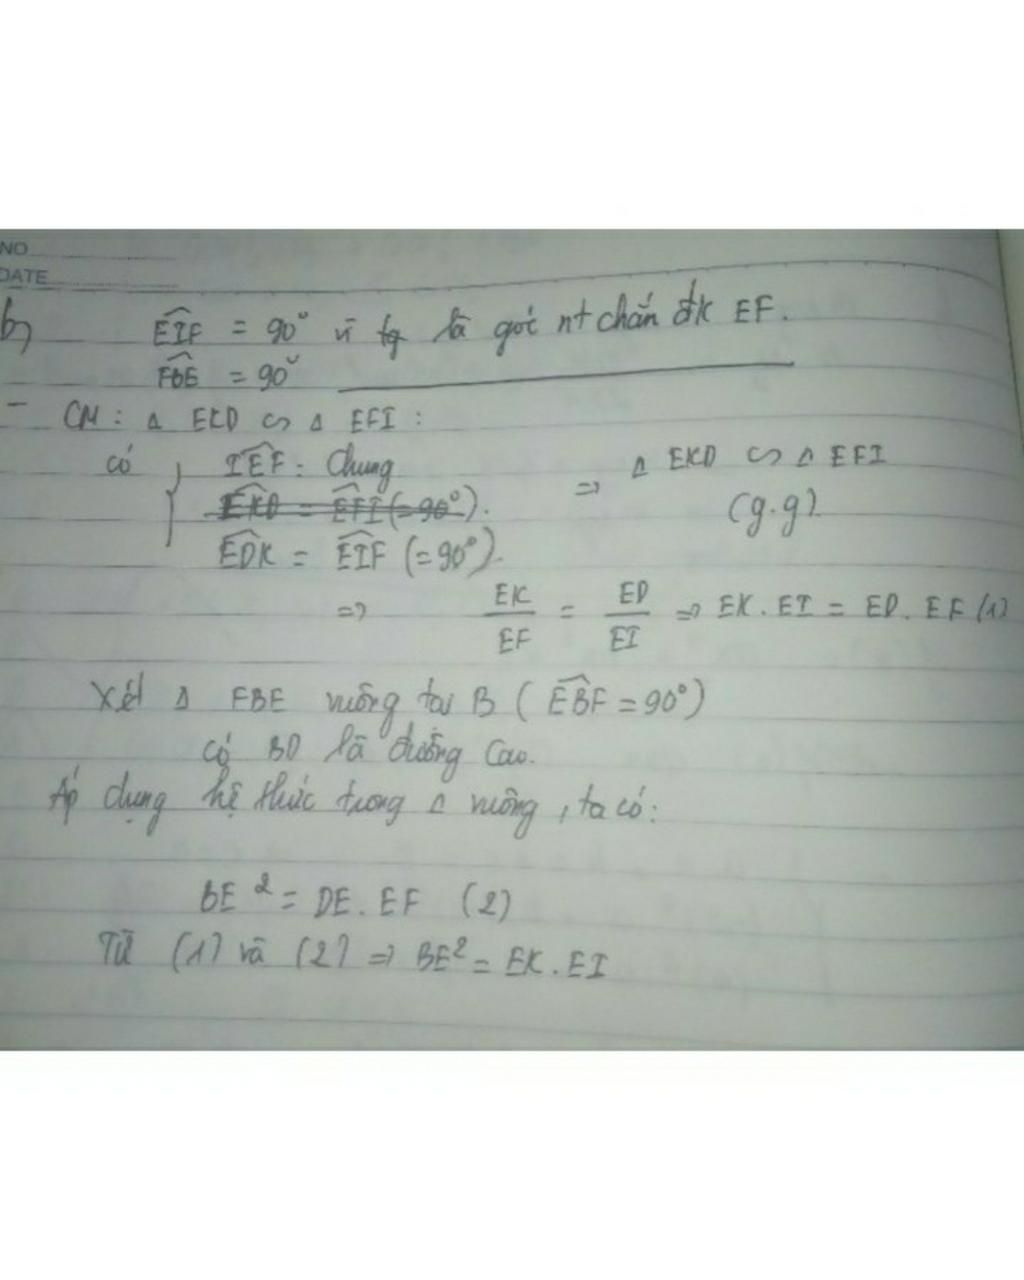 NO
DATE
b) EIF = 90° vì là góc nt chắn đk EF.
FBE = 90°
- CM: Δ EKD ∽ Δ EFI :
có { IEF: Chung => Δ EKD ∽ Δ EFI
EKD = EFI (= 90°). (g.g)
EDK = EIF (= 90°).
=> EK/EF = ED/EI => EK.EI = ED.EF (1)
Xét Δ FBE vuông tại B (EBF = 90°)
có BD là đường cao.
Áp dụng hệ thức trong Δ vuông, ta có:
BE² = DE.EF (2)
Từ (1) và (2) => BE² = EK.EI